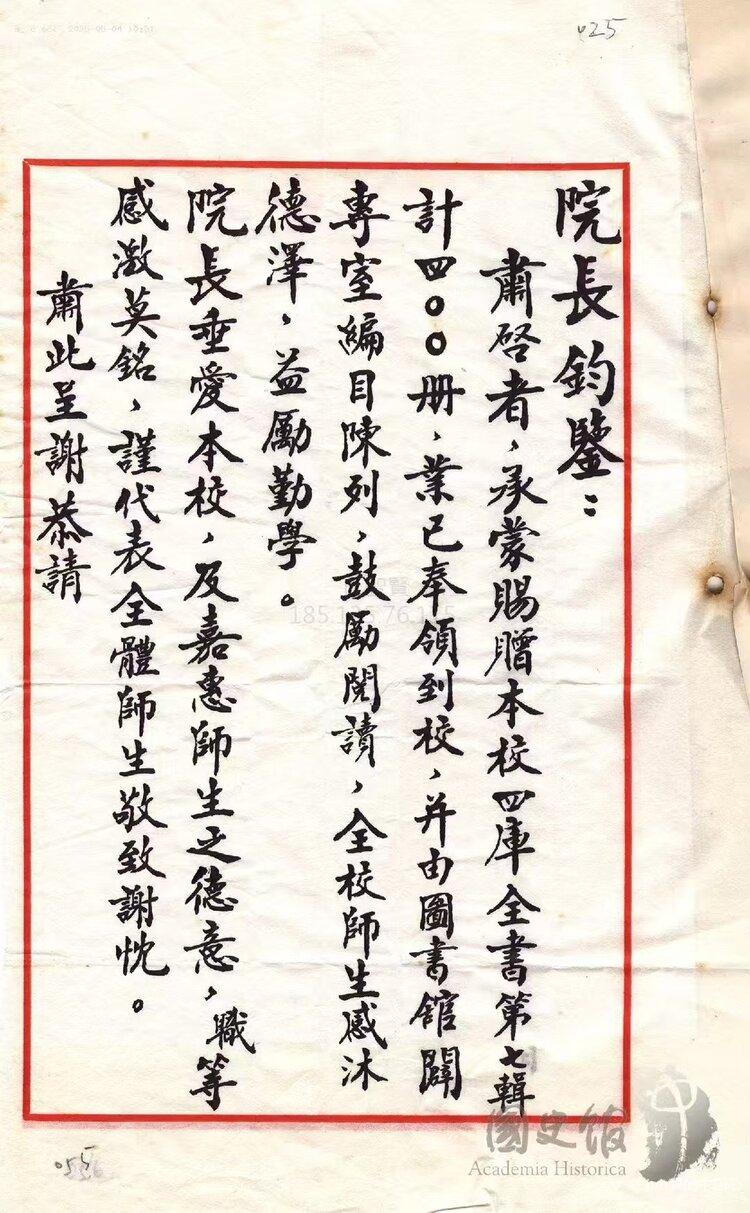 025
院長鈞鑒：
肅啓者，承蒙賜贈本校四庫全書第七輯
計四〇〇册，業已奉領到校，并由圖書館闢
專室編目陳列，鼓勵閱讀，全校師生感沐
德澤，益勵勤學。
院長垂愛本校，及嘉惠師生之德意，職等
感激莫銘，謹代表全體師生敬致謝忱。
肅此呈謝恭請
國史館
Academia Historica
055